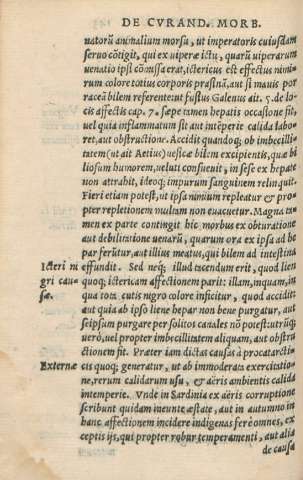 DE CVRAND. MORB.
natorũ animalium morsu, ut imperatoris cuiusdam
seruo cõtigit, qui ex uiperæ ictu, quarũ uiperarum
uenatio ipsi cõmissa erat, ictericus est effectus nimi-
rum colore totius corporis prasinã, aut si mauis por
raceã bilem referente: ut fusius Galenus ait. 5. de lo-
cis affectis cap. 7. sæpe etiam hepatis occasione fit,
uel quia inflammatum sit aut intẽperie calida labo-
ret, aut obstructione. Accidit quandoq; ob imbecilli-
tatem (ut ait Aetius) uesicæ bilem excipientis, quæ bi
liosum humorem, ueluti consueuit, in sese ex hepate
non attrahit, ideoq; impurum sanguinem relinquit.
Fieri etiam potest, ut ipsa nimium repleatur & pro-
pter repletionem multum non euacuetur. Magna ta-
men ex parte contingit hic morbus ex obturatione
aut debilitatione uenarũ, quarum ora ex ipsa ad he
par ferũtur, aut illius meatus, qui bilem ad intestina
Icteri ni effundit. Sed neq; illud tacendum erit, quod lien
gri cau- quoq; ictericam affectionem parit: illam, inquam, in
sæ. qua tota cutis nigro colore inficitur, quod accidit
aut quia ab ipso liene hepar non bene purgatur, aut
seipsum purgare per solitos canales nõ potest: utrũq;
uerò, uel propter imbecillitatem aliquam, aut obstru
ctionem fit. Præter iam dictas causas à procatarcti-
Externæ cis quoq; generatur, ut ab immoderata exercitatio-
ne, rerum calidarum usu, & aëris ambientis calida
intemperie. Vnde in Sardinia ex aëris corruptione
scribunt quidam ineunte æstate, aut in autumno in
hanc affectionem incidere indigenas ferè omnes, ex
ceptis ijs, qui propter robur temperamenti, aut alia
de causa